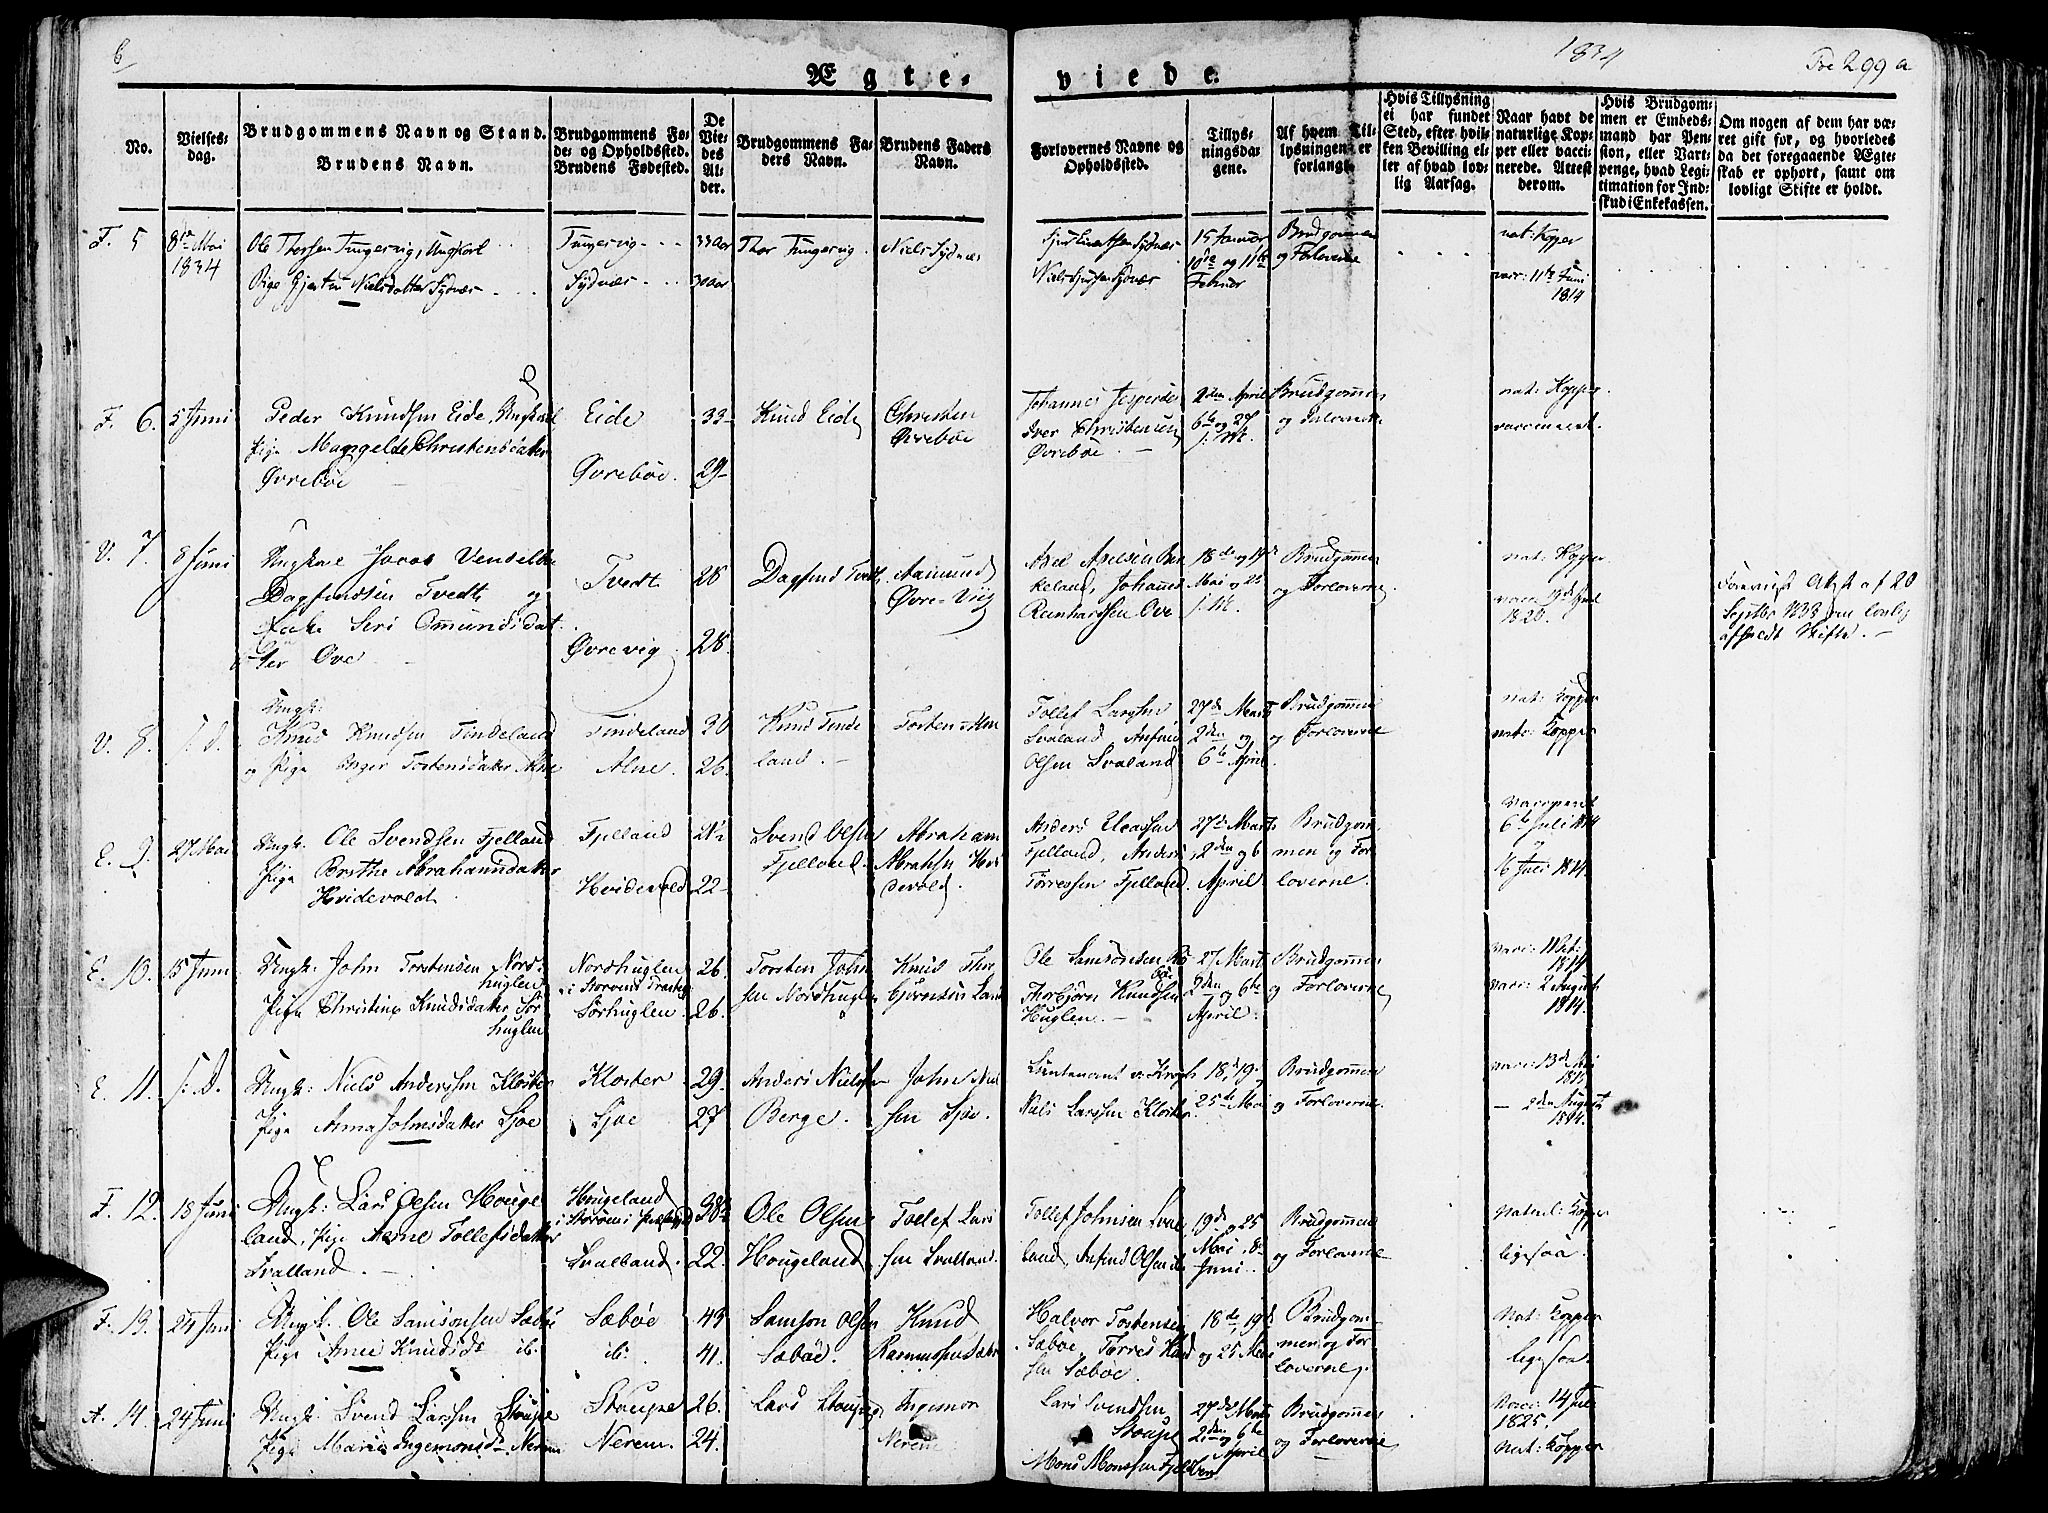 6
Ægteviede.
1834
Foe 299 a
No.
Vielses-
dag.
Brudgommens Navn og Stand.
Brudens Navn.
Brudgommens Fø-
de- og Opholdssted.
Brudens Fødested.
De
Vie-
des
Al-
der.
Brudgommens Fa-
ders Navn.
Brudens Faders
Navn.
Forlovernes Navne og
Opholdssted.
Tillys-
ningsda-
gene.
Af hvem Til-
lysningen er
forlangt.
Hvis Tillysning
ei har fundet
Sted, efter hvil-
ken Bevilling el-
ler af hvad lov-
lig Aarsag.
Naar havt de
naturlige Kop-
per eller vacci-
nerede. Attest
derom.
Hvis Brudgom-
men er Embeds-
mand har Pen-
sion, eller Vart-
penge, hvad Legi-
timation for Ind-
skud i Enkekassen.
Om nogen af dem har væ-
ret gift før, og hvorledes
da det foregaaende Ægte-
skab er ophørt, samt om
lovligt Skifte er holdt.
F. 5
8de Mai
1834
Ole Thorsen Tungesvig, Ungkarl
Pige Gjertru Nielsdatter Sydnæs
Tungesvig
Sydnæs
33 aar
30 aar
Thor Tungesvig
Niels Sydnæs
Sydnæs
Niels Sjursen Sydnæs
15 Januar
10de og 11te
Februar
Brudgommen
og Forloverne
nat: Kopper
vacc: 11te Juni
1814
F. 6.
5 Juni
Peder Knudsen Eide, Ungkarl
Pige Mangelde Christensdatter
Øvrebøe
Eide
Øvrebøe.
33
29
Knud Eide
Christen
Øvrebøe
Johannes Jespersen
Iver Christensen
Øvrebøe
2den April
6te og 27
s. M.
Brudgommen
og Forloverne
nat: Kopper
vaccineret.
V. 7.
8 Juni
Ungkarl Jacob Vendelbo
Dagfindsen Tvedt og
Enke Seri Omundsdat-
ter Ove
Tvedt
Øvrevig
28
28.
Dagfind Tvedt
Aamund
Øvre-Vig
Axel Axelsen
keland, Johannes
Reinhartsen Ove
18de og 19d
Mai og 25
s. M.
Brudgommen
og Forloverne.
nat: Kopper
vacc: 19de Juli
1820.
Foreviist Attest af 20
Septbr 1833 om lovlig
afholdt Skifte.
V. 8.
s. D.
Ungk:
Knud Knudsen Tindeland
og Pige Inger Tostensdatter Alne
Tindeland
Alne.
30
26.
Knud Tinde
land.
Tosten Alne
Tollef Larssen
Svaland Anfind
Olsen Svaland
27de Marts
2den og
6te April.
Brudgommen
og Forloverne
nat: Kopper
nat: Kopper
E. 9.
27 Mai
Ungk. Ole Svendsen Fjelland
Pige Brithe Abrahamsdatter
Hvidevoldt
Fjelland
Hvidevold
21½
22
Svend Olsen
Fjelland
Abraham
Abrahsn Hvi
devold.
Anders
Fjelland, Anders
Torressen Fjelland
27de Marts
2den og 6
April
Brudgom-
men og For-
loverne.
Vaccineret
6te Juli 1814
og
16 Juli 1814.
E. 10.
15 Juni
Ungk. John Torstensen Nord-
huglen
Pige Christine Knudsdatter Sør
huglen
Nordhuglen
i Storøens Præsteg
Sørhuglen
26.
26.
Torsten John
sen Nordhuglen
Knud Thor
bjørnsen
Ole Samsonsen
Thorbjørn Knudsen
Huglen.
27 Marts
2den og 6te
April
Brudgommen
og Forloverne
vacc:
1814
vacc: 2 August
1814.
E. 11.
s. D.
Ungk: Niels Anderssen Kloster
Pige Anna Johnsdatter Sjoe
Kloster
Sjoe
29.
27
Anders Nielsen
Berge.
John Niel
sen Sjoe.
Lieutenant v: Krogh
Niels Larssen Kloster.
18, 19.
25de Mai
Brudgommen
og Forloverne.
vacc: 13d Mai
1815
— 2den August
1814.
F. 12.
18 Juni
Ungk: Lars Olsen Houge
land, Pige Aerne Tollefsdatter
Svalland.
Hougeland
i Storøens Præstegd
Svalland.
38½
22.
Ole Olsen
Hougeland
Tollef Lars
sen Svalland.
Tollef Johnsen Sval
land, Anfind Olsen
19de og 25
Mai, 8
Juni
Brudgommen
og Forloverne
Naturl: Kopper
ligesaa.
F. 13.
24 Juni
Ungk. Ole Samsonsen Sæbøe
Pige Anne Knudsdr ib:
Sæbøe
ib:
43
41.
Samson Olsen
Sæbøe.
Knud
Rasmussen Sæbø
Halvor Tostensen
Sæbøe, Torres Knud
sen Sæbøe.
18de, 19d
og 25 Mai
Brudgom-
men og For-
loverne.
Nat: Kopper
ligesaa
A. 14.
24 Juni
Ungk: Svend Larssen Staupe
Pige Maria Ingemonsdr Nerem
Staupe
Nerem.
26.
24.
Lars Staupe
Ingemon
Nerem
Lars Svendsen
Staupe
Mons Monssen
27de Marts
2den og 6te
April
Brudgommen
og Forloverne
Vacc: 14 Juli
1825.
Nat: Kopper